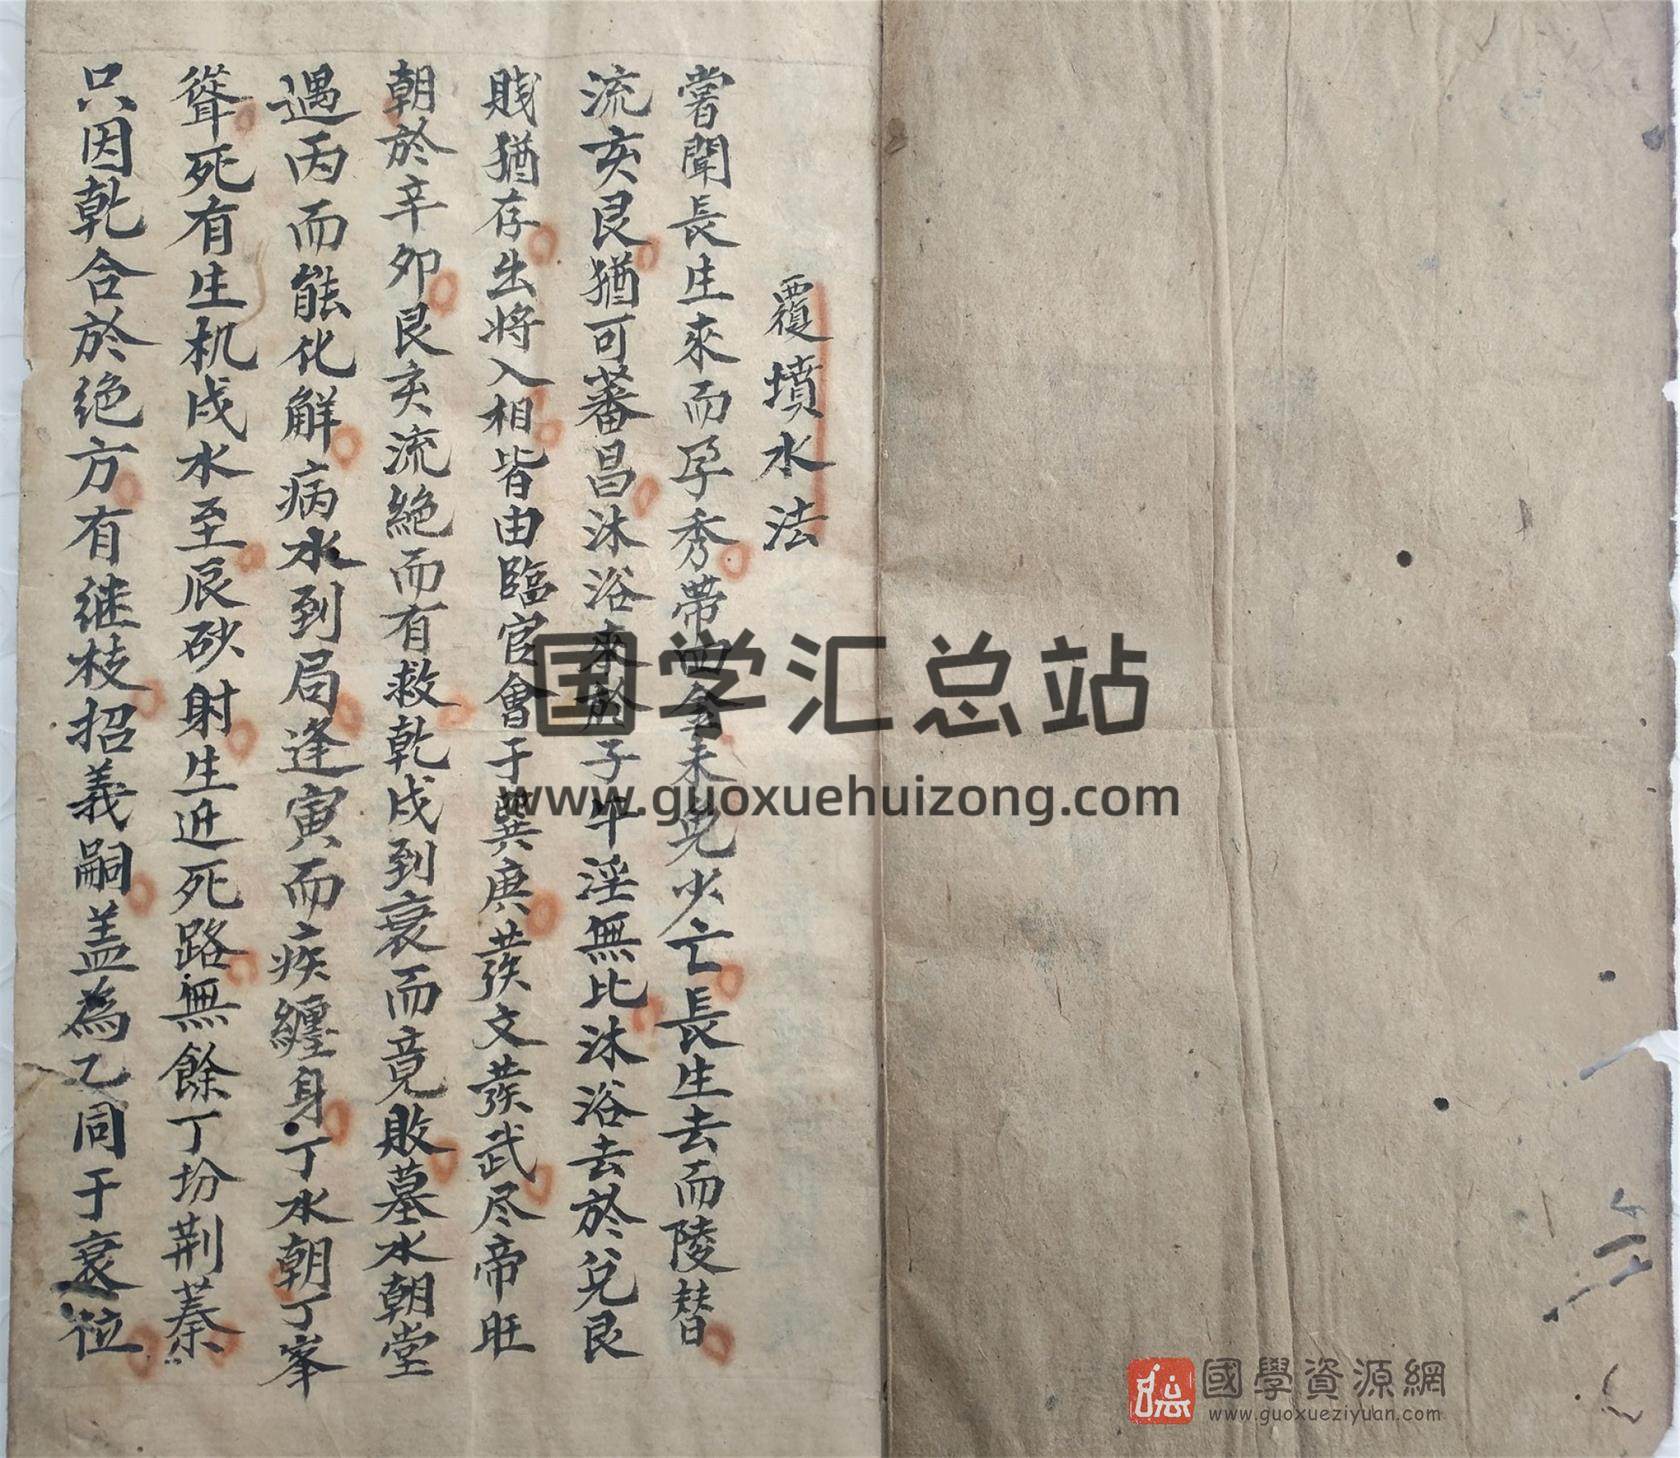 覆墳水法
嘗聞長生來而孕秀帶來兒少亡長生去而陵替
流亥艮猶可蕃昌沐浴來於子午淫無比沐浴去於兌艮
賤猶存出将入相皆由臨官會于巽庚𤼵文𤼵武尽帝旺
朝於辛卯艮亥流絕而有救乾戌到衰而竟敗墓水朝堂
遇丙而能化解病水到局逢寅而疾纏身丁水朝丁峯
聳死有生机戌水至辰砂射生迯死路無餘丁坋荆蓁
只因乾合於绝方有继枝招義嗣盖為乙同于衰位
国学汇总站
www.guoxuehuizong.com
國學資源網
www.guoxueziyuan.com